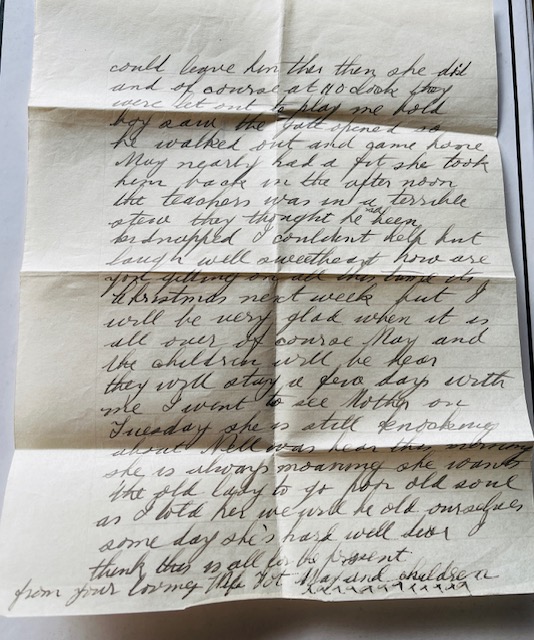 could leave him ther then she did
and of course at 11 oclock they
were let out to play me hold
boy saw the gate opened so
he walked out and came home
May nearly had a fit she took
him back in the after noon
the teachers was in a terrible
stew they thought he had been
kidnapped I couldent help but
laugh well sweetheart how are
you getting on all this time its
Christmas next week but I
will be very glad when it is
all over of course May and
the children will be hear
they will stay a few days with
me I went to see Mother on
Tuesday she is still knocking
about Nell was hear this morning
she is always moaning she wants
the old lady to go poor old soul
as I told her we will be old ourselves
some day she's hard well dear I
think this is all for the present
from your loving Wife May and children